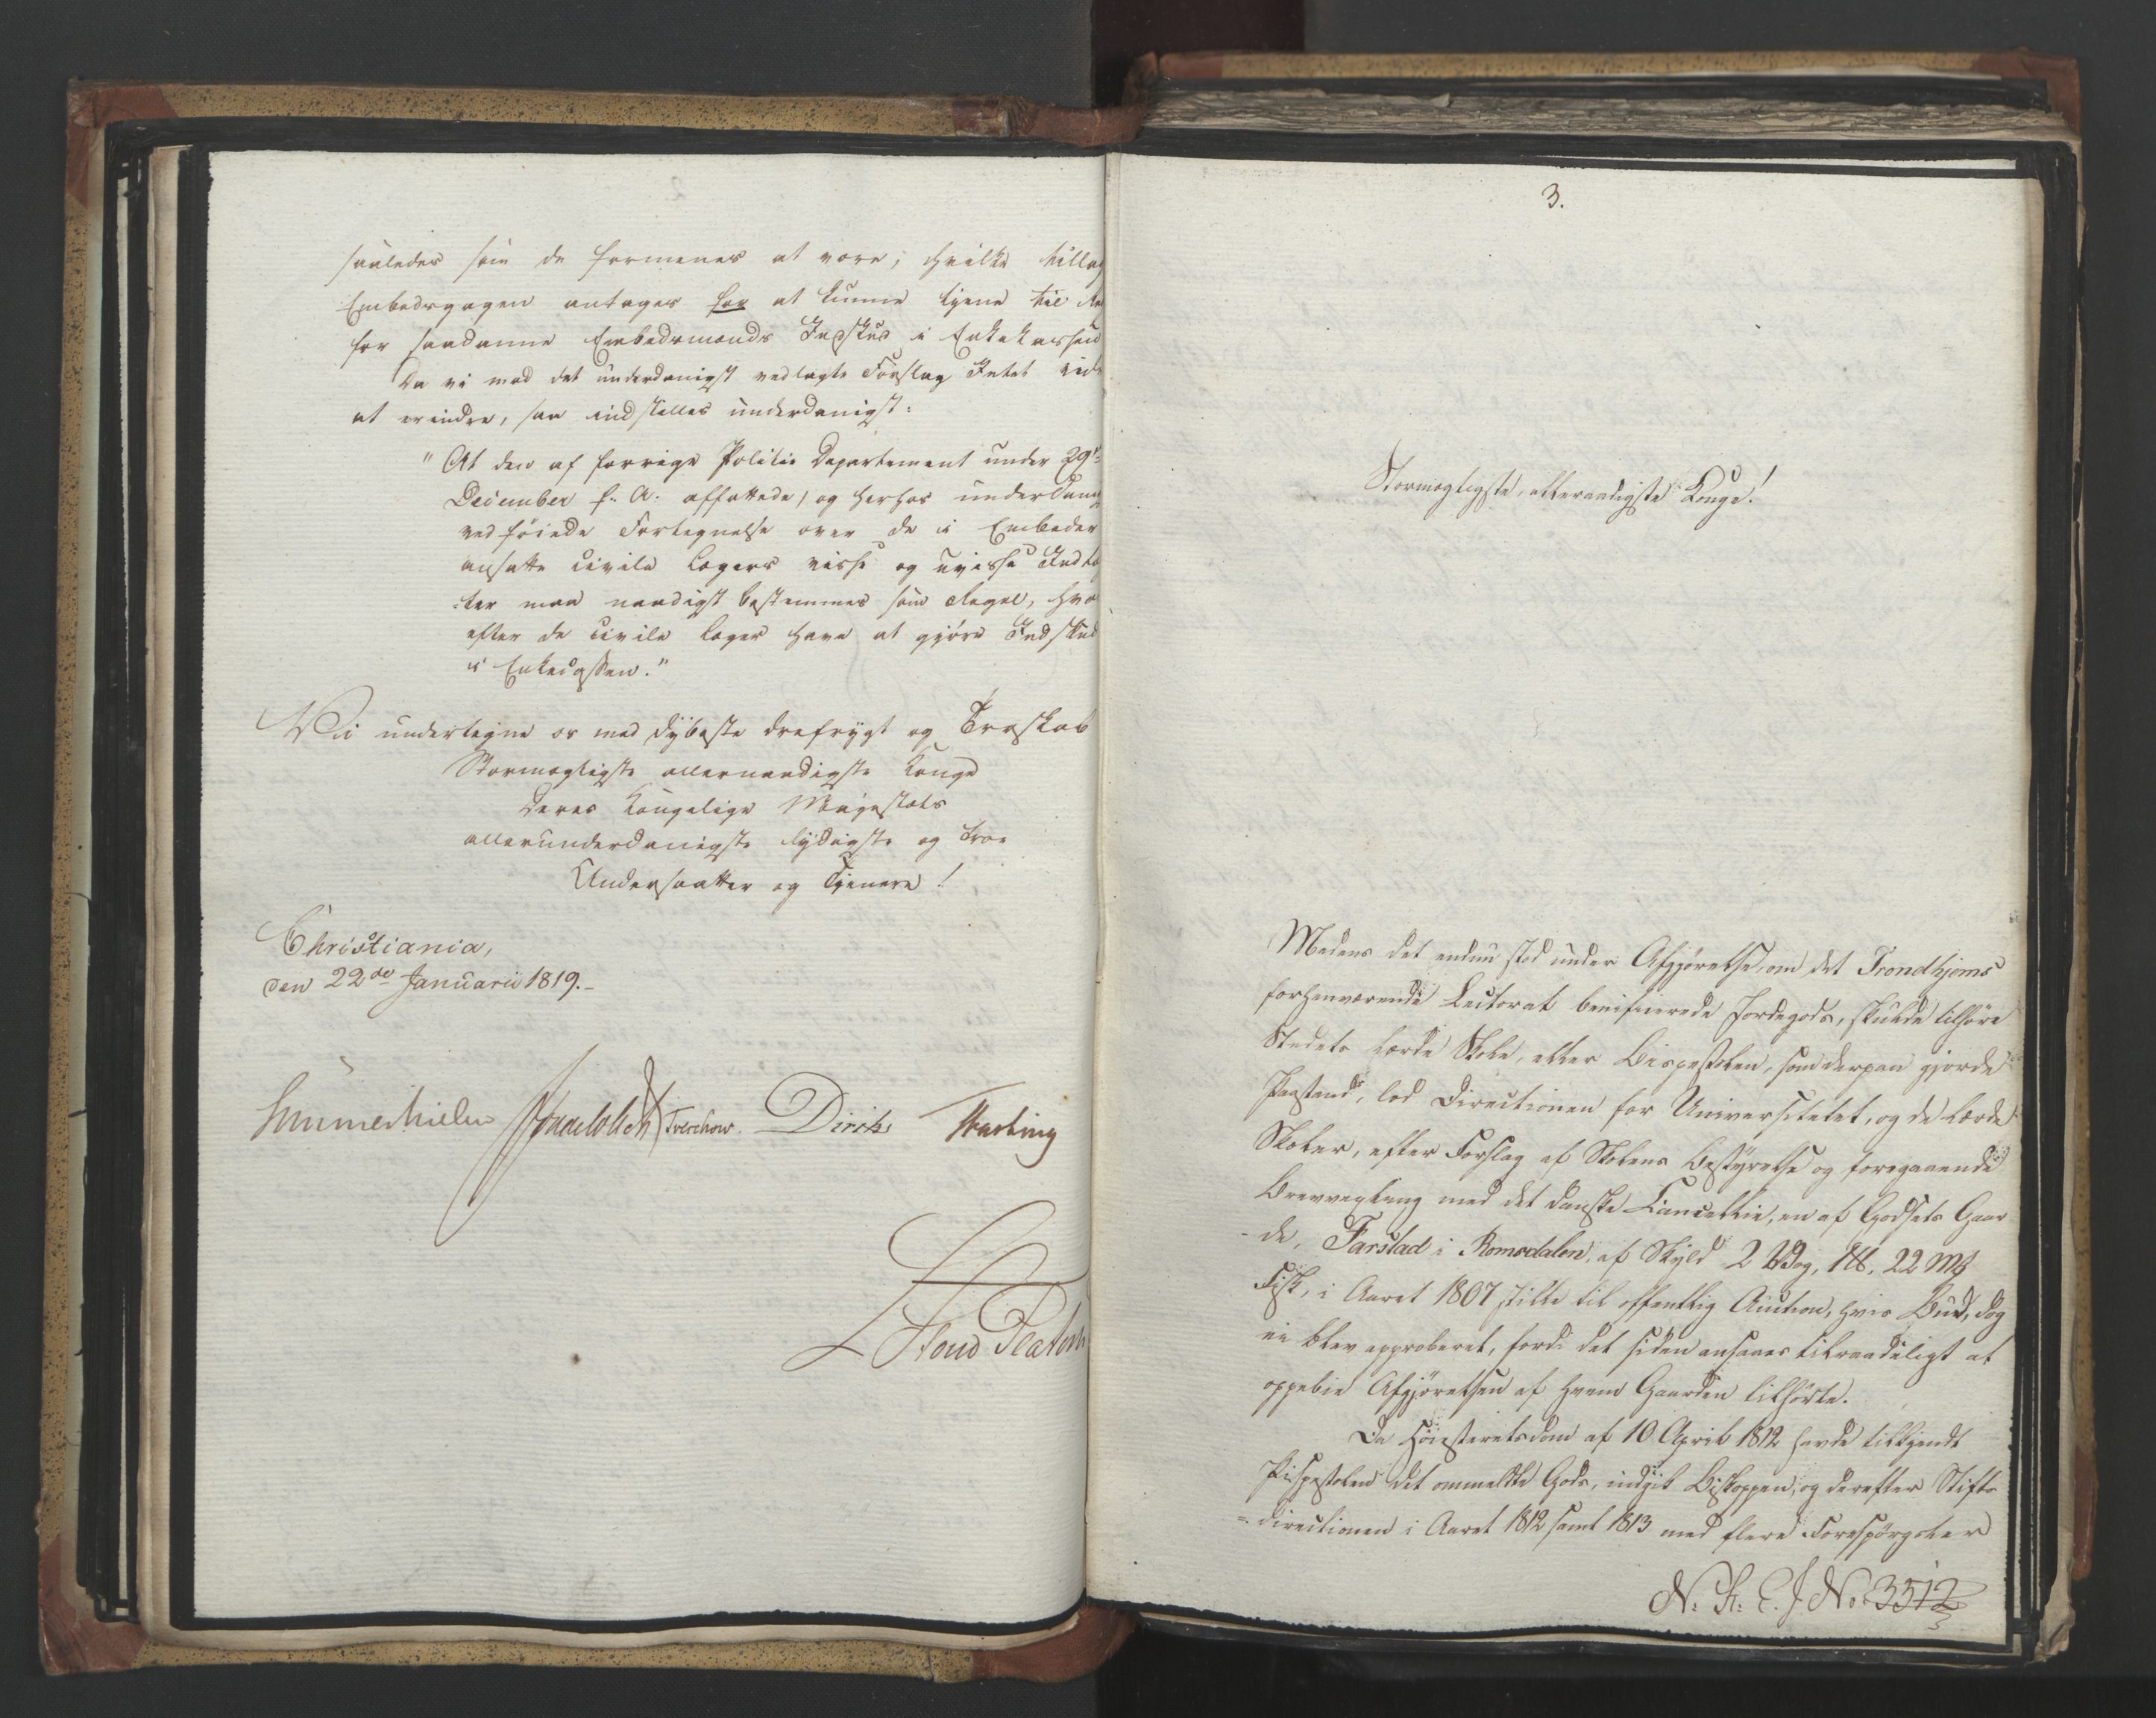 saaledes som de formenes at være; hvilke tillag
Embedsgagen antages for at kunne tjene til
for saadanne Embedsmænds Indskud i Enkekassen
Da vi mod det underdanigst vedlagte Forslag Intet vide
at erindre, saa indstilles underdanigst:
"At den af forrige Politie Departement under 29de
December f. A. affattede, og herhos underdanig
vedføiede Fortegnelse over de i Embeder
ansatte civile Lægers visse og uvisse Indtæ
-ter maa naadigst bestemmes som Regel, hvor
efter de civile Læger have at gjøre Indskud
i Enkecassen."
Vi undertegne os med dybeste Ærefrygt og Troskab
Stormægtigste allernaadigste Konge
Deres Kongelige Majestæts
allerunderdanigste lydigste og troe
Undersaatter og Tjenere!
Christiania,
den 22de Januarii 1819.-
Sommerhielm Treschow. Diriks Hasting
3.
Stormægtigste, allernaadigste Konge!
Medens det endnu stod under Afgjørelse, om det Trondhjems
forhenværende Lectorat beneficerede Jordegods, skulde tilhøre
Stedets lærde Skole, eller Bispestolen, som derpaa gjorde
Paastand, lod Directionen for Universitetet, og de lærde
Skoler, efter Forslag af Skolens Bestyrelse og foregaaende
Brevvexling med det danske Cancellie, en af Godsets Gaar
-de, Farstad i Romsdalen, af Skyld 2 Vog, 1 ℔, 22 Mk
Fisk, i Aaret 1807 stille til offentlig Auction, hvis Bud, dog
ei blev approberet, fordi det siden ansaaes tilraadeligt at
oppebie Afgjørelsen af hvem Gaarden tilhørte.
Da Høiesteretsdom af 10 April 1812 havde tilkjendt
Bispestolen det ommeldte Gods, indgik Biskoppen, og derefter Stifts
=directionen i Aaret 1812 samt 1813 med flere Forespørgsler
N: K: E. J No 3512